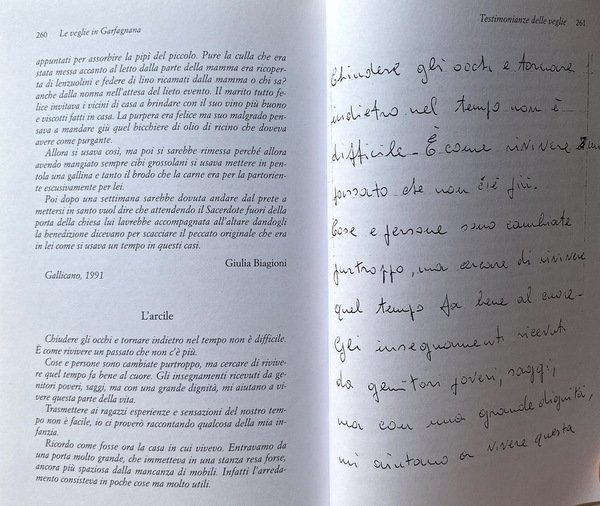 260    Le veglie in Garfagnana
appuntati per assorbire la pipì del piccolo. Pure la culla che era
stata messa accanto al letto dalla parte della mamma era ricoper-
ta di lenzuolini e federe di lino ricamati dalla mamma o chi sa?
anche dalla nonna nell'attesa del lieto evento. Il marito tutto fe-
lice invitava i vicini di casa a brindare con il suo vino più buono
e viscotti fatti in casa. La purpera era felice ma suo malgrado pen-
sava a mandare giù quel bicchiere di olio di ricino che doveva
avere come purgante.
Allora si usava così, ma poi si sarebbe rimessa perché allora
avendo mangiato sempre cibi grossolani si usava mettere in pen-
tola una gallina e tanto il brodo che la carne era per la partorien-
te escusivamente per lei.
Poi dopo una settimana sarebbe dovuta andare dal prete a
mettersi in santo vuol dire che attendendo il Sacerdote fuori della
porta della chiesa lui lavrebbe accompagnata all'altare dandogli
la benedizione dicevano per scacciare il peccato originale che era
in lei come si usava un tempo in questi casi.
Giulia Biagioni
Gallicano, 1991
L'arcile
Chiudere gli occhi e tornare indietro nel tempo non è difficile.
È come rivivere un passato che non c'è più.
Cose e persone sono cambiate purtroppo, ma cercare di rivive-
re quel tempo fa bene al cuore. Gli insegnamenti ricevuti da ge-
nitori poveri, saggi, ma con una grande dignità, mi aiutano a vi-
vere questa parte della vita.
Trasmettere ai ragazzi esperienze e sensazioni del nostro tem-
po non è facile, io ci proverò raccontando qualcosa della mia in-
fanzia.
Ricordo come fosse ora la casa in cui vivevo. Entravamo da
una porta molto grande, che immetteva in una stanza resa forse,
ancora più spaziosa dalla mancanza di mobili. Infatti l'arreda-
mento consisteva in poche cose ma molto utili.
Testimonianze delle veglie    261
Chiudere gli occhi e tornare
indietro nel tempo non è
difficile. È come rivivere un
passato che non c'è più.
Cose e persone sono cambiate
purtroppo, ma cercare di rivivere
quel tempo fa bene al cuore.
Gli insegnamenti ricevuti
da genitori poveri, saggi,
ma con una grande dignità,
mi aiutano a vivere questa